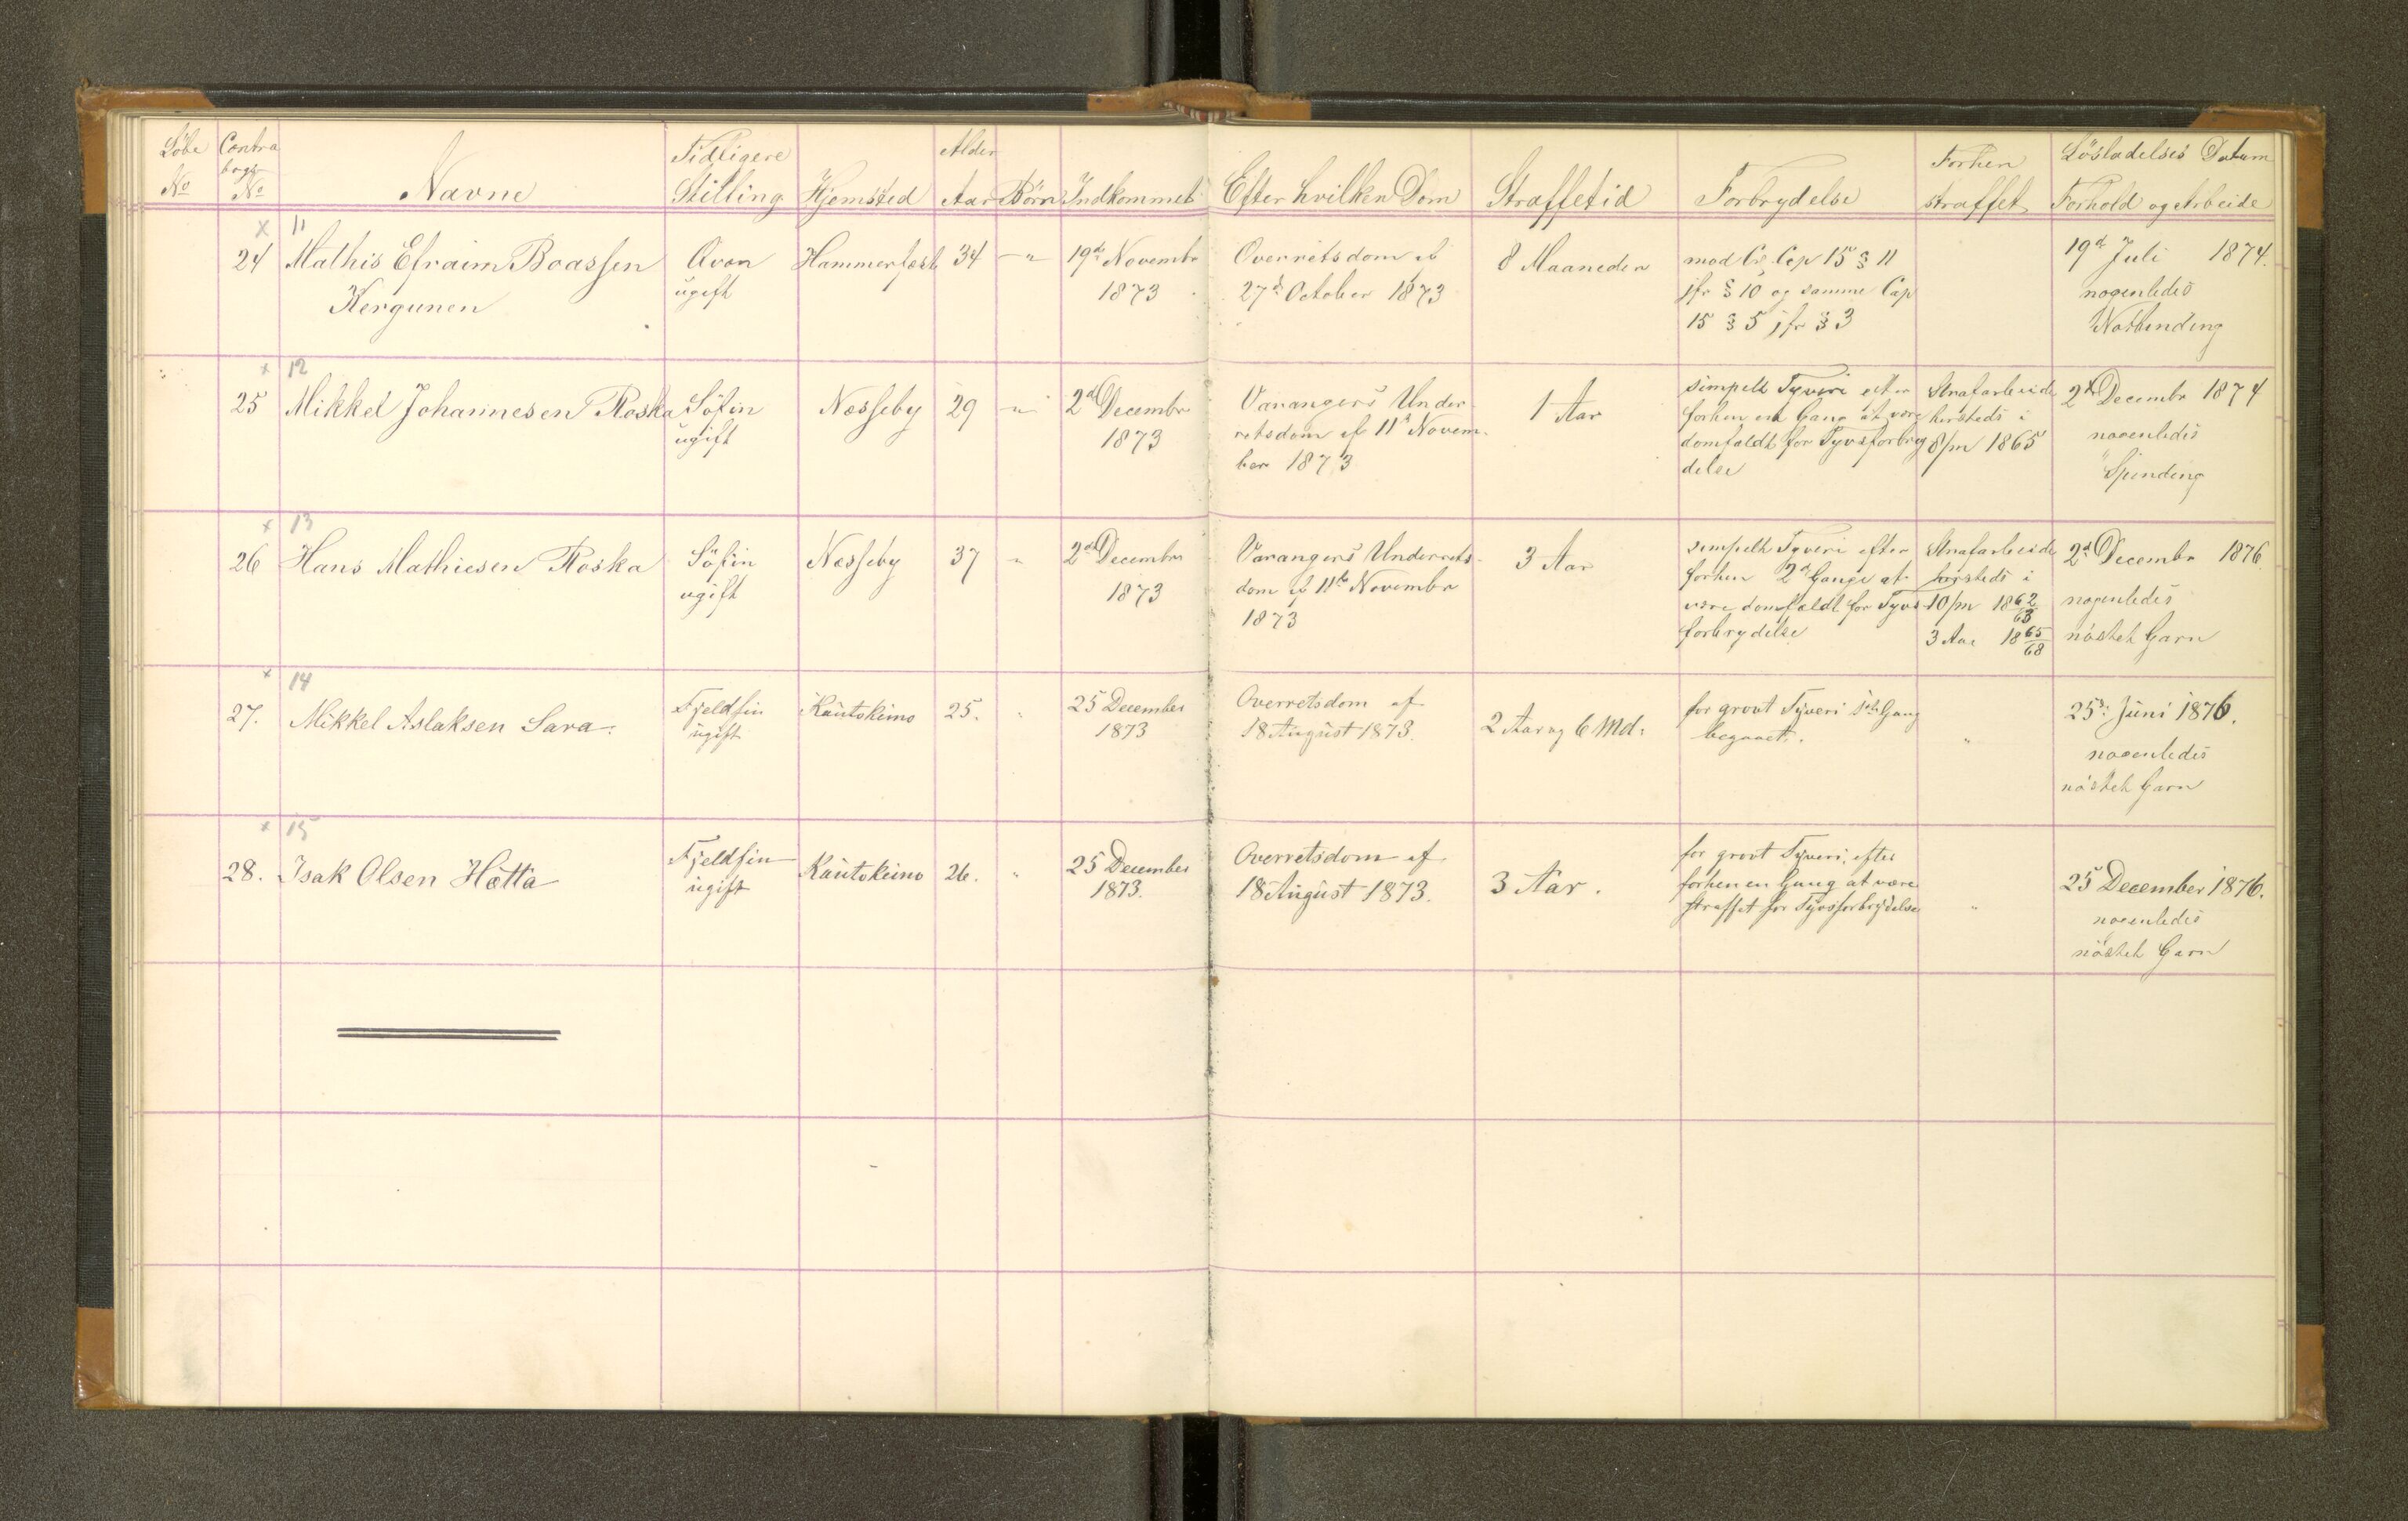 Løbe Contra Tidligere Alder Forhen Lösladelses Datum
No bogs No Navne Stilling Hjemsted Aar Börn Indkommet Efter hvilken Dom Straffetid Forbrydelse straffet Forhold og Arbeide
x 11
24 Mathis Efraim Boassen Qvæn Hammerfest 34 " 19de Novembr Overretsdom af 8 Maaneder mod Cr. Cap 15 § 11 19de Juli 1874.
Kergunen ugift 1873 27de October 1873 jfr § 10 og samme Cap nogenledes
15 § 5 jfr § 3 Notbinding
x 12
25 Mikkel Johannesen Roska Söfin Nesseby 29 " 2det Decembr Varangers Under 1 Aar simpelt Tyveri efter Strafarbeide 2de Decembr 1874
ugift 1873 retsdom af 11te Novem- forhen en Gang at være hersteds i nogenledes
ber 1873 domfældt for Tyvsforbry 8/m 1865 Spinding
delse
x 13
26 Hans Mathiesen Roska Söfin Nesseby 37 " 2det Decembr Varangers Underrets- 3 Aar simpelt Tyveri efter Strafarbeide 2de Decembr 1876
ugift 1873 dom af 11te Novembr forhen 2de Gange at hersteds i nogenledes
1873 være domfældt for Tyvs 10/m 1862/63 nöstet Garn
forbrydelse 3 Aar 1865/68
x 14
27. Mikkel Aslaksen Sara. Fjeldfin Kautokeino 25. " 25 December Overretsdom af 2 Aar og 6 Md. for grovt Tyveri 1ste Gang " 25de Juni 1876.
ugift 1873 18 August 1873. begaaet. nogenledes
nöstet Garn
x 15
28. Isak Olsen Hætta Fjeldfin Kautokeino 26. " 25 December Overretsdom af 3 Aar. for grovt Tyveri, efter " 25 December 1876.
ugift 1873. 18 August 1873. forhen en Gang at være nogenledes
straffet for Tyvsforbrydelse nöstet Garn